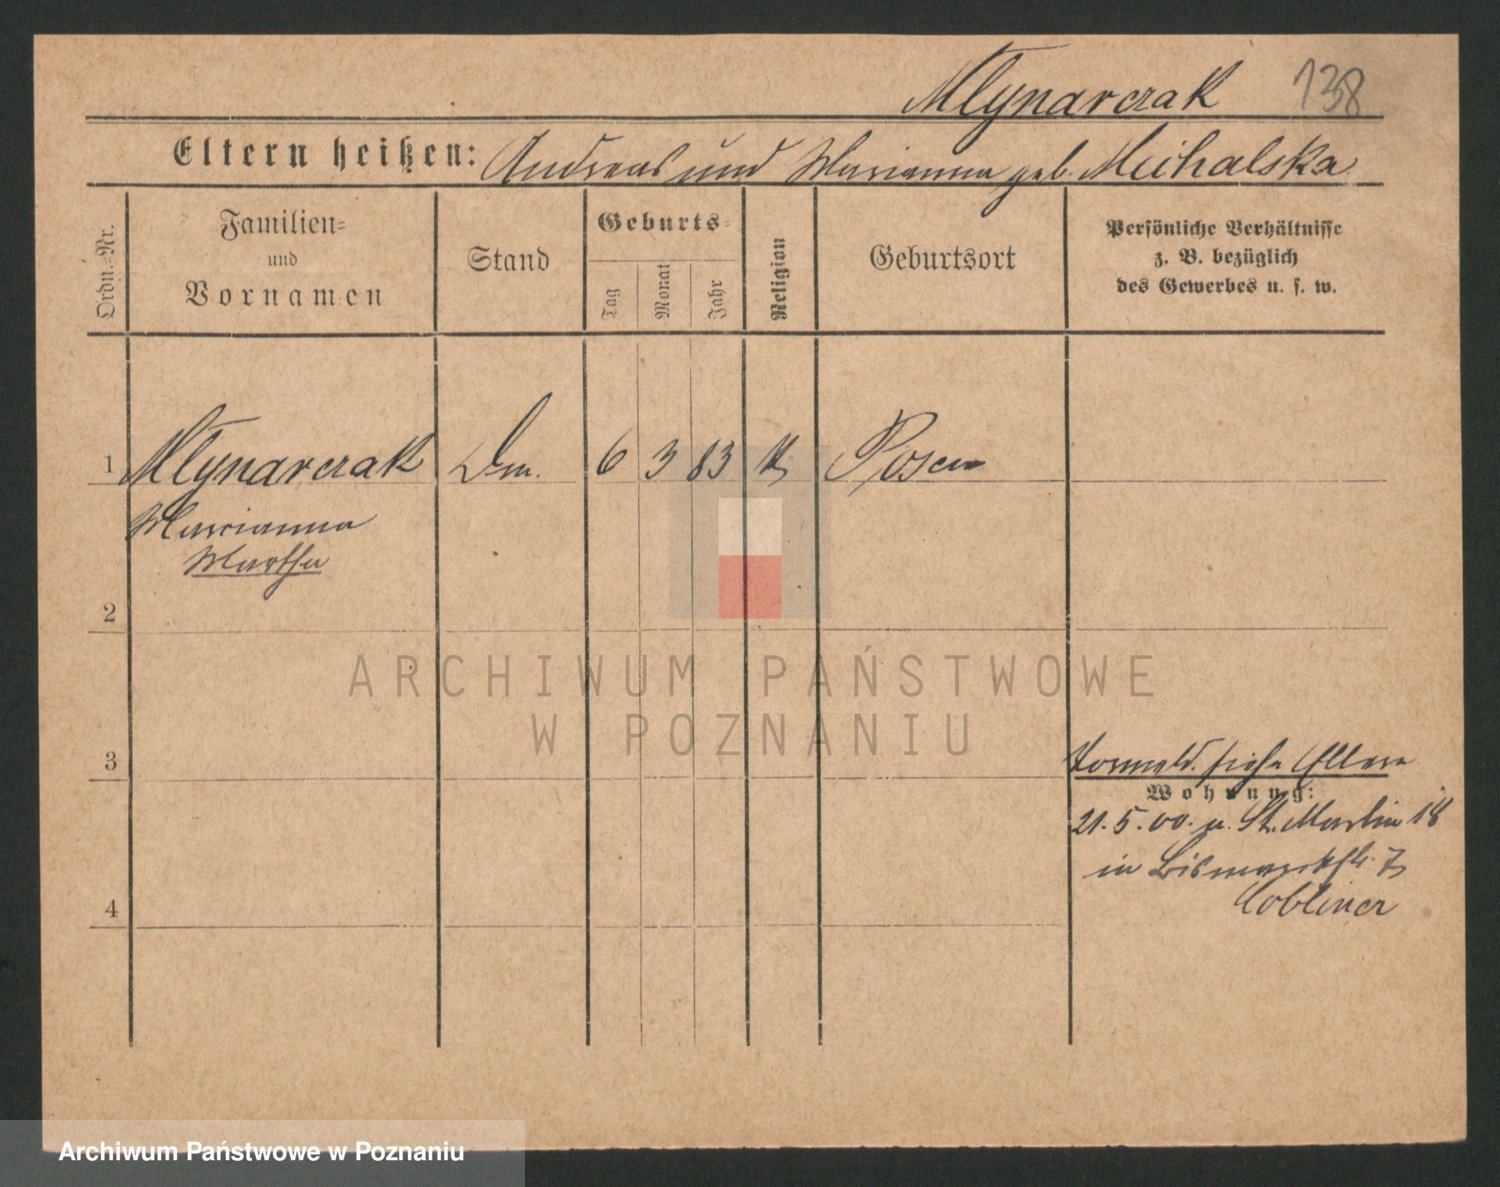 Mlynarczak 138
Eltern heißen: Andreas und Marianna geb. Michalska
Ordn.-Nr.
Familien-
und
Vornamen
Stand
Geburts-
Tag
Monat
Jahr
Religion
Geburtsort
Persönliche Verhältnisse
z. B. bezüglich
des Gewerbes u. s. w.
1 Mlynarczak Dm. 6 3 83 k Posen
Marianna
Martha
2
ARCHIWUM PAŃSTWOWE
W POZNANIU
3
siehe Eltern
Wohnung:
21.5.00. z. St. Martin 18
in Bismarckstr. 7
Cobliner
4
Archiwum Państwowe w Poznaniu